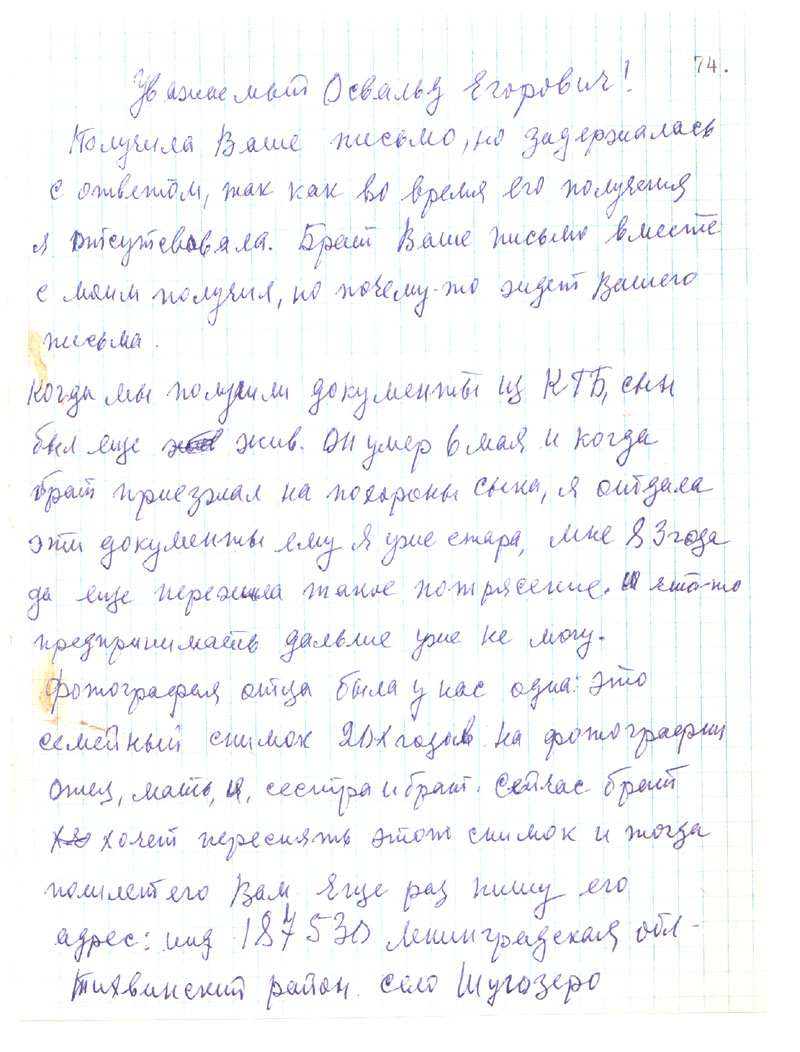 74.
Уважаемый Освальд Егорович!
Получила Ваше письмо, но задержалась
с ответом, так как во время его получения
я отсутсвовала. Брат Ваше письмо вместе
с моим получил, но почему-то ждет Вашего
письма.
Когда мы получили документы из КГБ, сын
был еще жив. Он умер 6 мая и когда
брат приезжал на похороны сына, я отдала
эти документы ему я уже стара, мне 83 года
да еще пережила такое потрясение. И что-то
предпринимать дальше уже не могу.
Фотография отца была у нас одна: это
семейный снимок 20х годов на фотографии
отец, мать, я, сестра и брат. Сейчас брат
хочет переснять этот снимок и тогда
пошлет его Вам. Еще раз пишу его
адрес: инд 187530 Ленинградская обл-
Тихвинский район. село Шугозеро